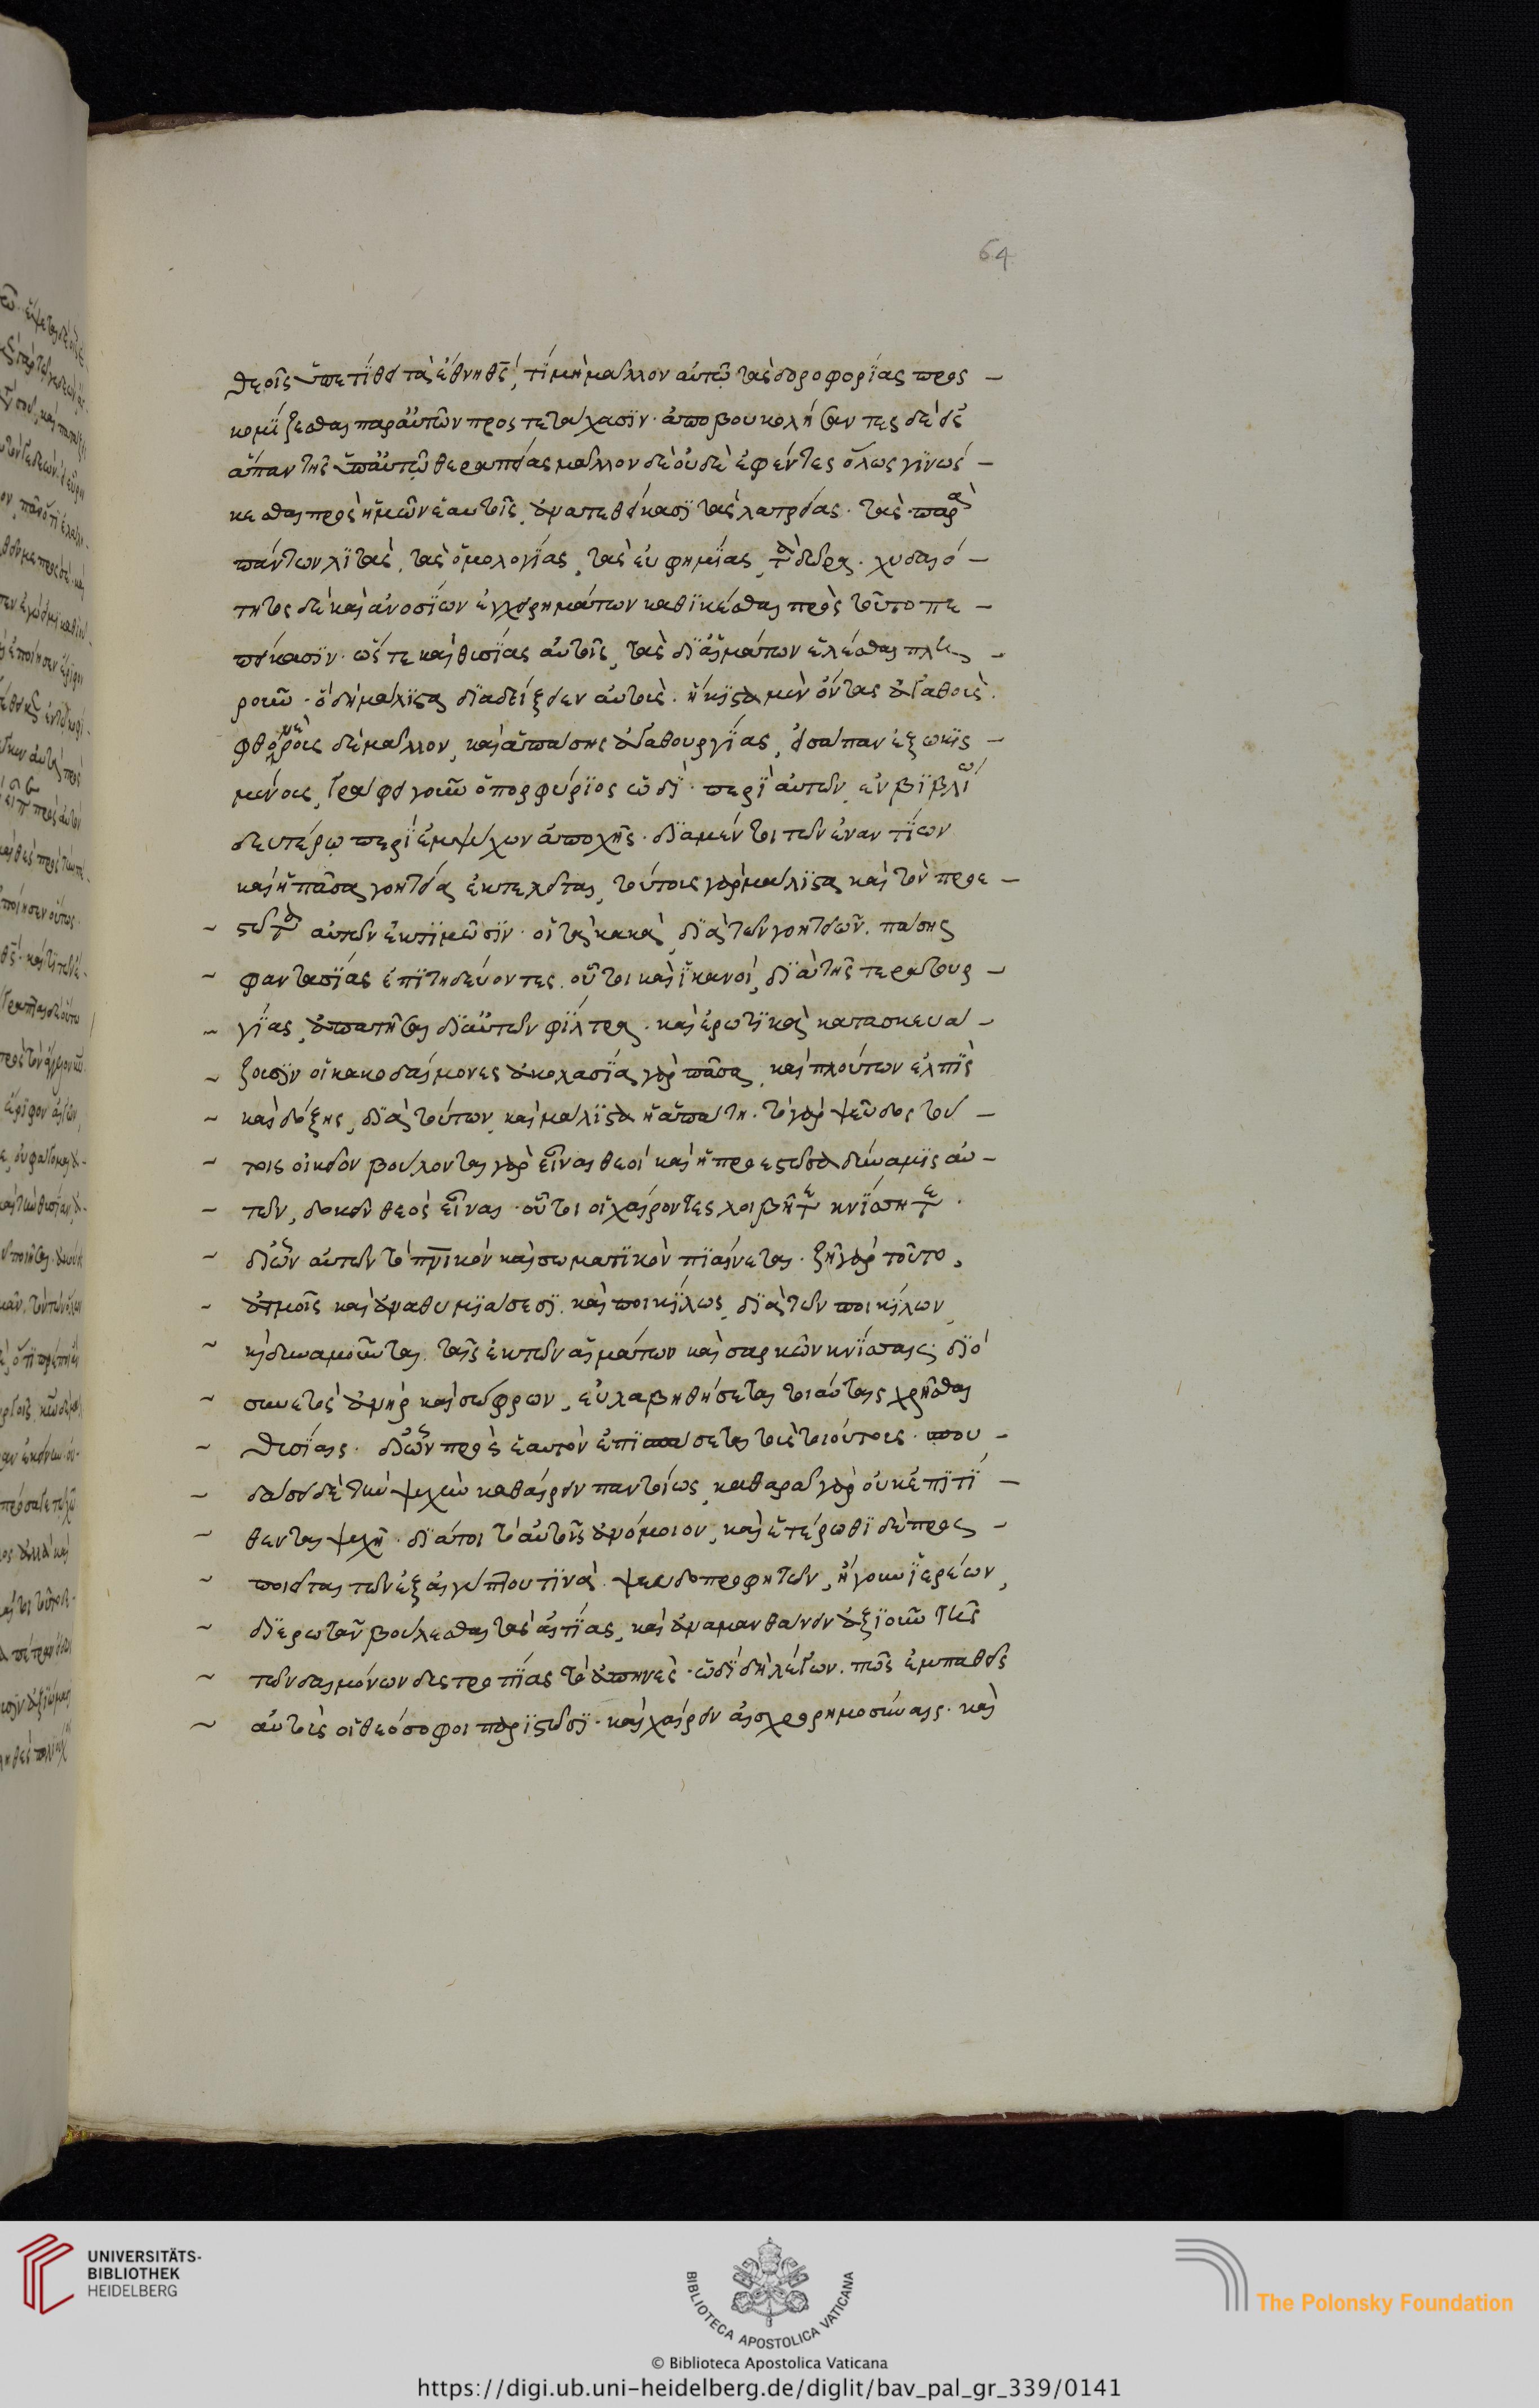 64
θεοῖς ὑπετίθει τὰ ἔθνη θ̅ς̅, τί μὴ μᾶλλον αὐτῷ τὰς δοροφορίας προς
κομίζεσθαι παρ' αὐτῶν προς τετάχασιν· ἀποβουκολήσαντες δὲ δὲ
ἅπαν τῆς ὑπ' αὐτῷ θεραπείας μᾶλλον δὲ οὐδὲ ἐφέντες ὅλως γινώς
κεσθαι πρὸς ἡμῶν ἑαυτοῖς, ἀνατεθείκασι τὰς λατρείας. τὰς παρὰ
πάντων λιτὰς, τὰς ὁμολογίας, τὰς εὐφημίας, τὰ δῶρα. χυδαιό
τητος δὲ καὶ ἀνοσίων ἐγχειρημάτων καθικέσθαι πρὸς τοῦτο πε
ποίκασιν· ὥστε καὶ θυσίας αὐτοῖς, τὰς δι' αἱμάτων ἑλέσθαι πλη
ροῦν· ὃ δὴ μάλιστα διαδείξειεν αὐτοὺς. ἥκιστα μὲν ὄντας ἀγαθοὺς.
φθοροποιοὺς δὲ μᾶλλον, καὶ ἁπάσης ἀγαθουργίας, εἰσάπαν ἐξωκισ
μένους, γράφει γοῦν ὁ πορφύριος ὡδί· περὶ αὐτῶν, ἐν βιβλίῳ
δευτέρῳ περὶ ἐμψύχων ἀποχῆς. διὰ μέντοι τῶν ἐναντίων
καὶ ἡ πᾶσα γοητεία ἐκτελεῖται, τούτοις γὰρ μάλιστα καὶ τὸν προε
στῶτα αὐτῶν ἐκτιμῶσιν· οἱ τὰ κακὰ διὰ τῶν γοητειῶν. πάσης
φαντασίας ἐπιτηδεύοντες. οὗτοι καὶ ἱκανοὶ, διὰ τῆς τερατουρ
γίας, ἀπατῆσαι δι' αὐτῶν φίλτρα. καὶ ἐρωτικὰ κατασκευά
ζουσιν οἱ κακοδαίμονες ἀκολασία γὰρ πᾶσα, καὶ πλούτων ἐλπὶς
καὶ δόξης, διὰ τούτων, καὶ μάλιστα ἡ ἀπάτη. τὸ γὰρ ψεῦδος τού
τοις οἰκεῖον βούλονται γὰρ εἶναι θεοὶ καὶ ἡ προεστῶσα δύναμις αὐ
τῶν, δοκεῖν θεὸς εἶναι. οὗτοι οἱ χαίροντες λοιβῇ τε κνίσσῃ τε.
δι' ὧν αὐτῶν τὸ πνικὸν καὶ σωματικὸν πιαίνεται. ζῇ γὰρ τοῦτο,
ἀτμοῖς καὶ ἀναθυμιάσεσι. καὶ ποικίλως, διὰ τῶν ποικίλων,
κ(αὶ) δυναμοῦται. ταῖς ἐκ τῶν αἱμάτων καὶ σαρκῶν κνίσσαις· διὸ
συνετὸς ἀνὴρ καὶ σώφρων, εὐλαβηθήσεται τοιαύταις χρῆσθαι
θυσίαις. δι' ὧν πρὸς ἑαυτὸν ἐπισπάσεται τοὺς τοιούτους. σπου
δάσει δὲ τὴν ψυχὴν καθαίρειν παντοίως, καθαρᾷ γὰρ οὐκ ἐπιτί
θενται ψυχῇ. διά τοι τὸ αὐτοῖς ἀνόμοιον, καὶ ἑτέρωθι δὲ προς
ποιεῖται τῶν ἐξ αἰγύπτου τινὰ. ψευδοπροφητῶν, ἤγουν ἱερέων,
διερωτᾶν βούλεσθαι τὰς αἰτίας, καὶ ἀναμανθάνειν ἀξιοῦν τῆς
τῶν δαιμόνων δεςτροπίας τὸ ἀπηνὲς. ὡδὶ δὴ λέγων. πῶς ἐμπαθεῖς
αὐτοὺς οἱ θεόσοφοι παριστῶσι. καὶ χαίρειν αἰσχρορημοσύναις. καὶ
UNIVERSITÄTS-
BIBLIOTHEK
HEIDELBERG
BIBLIOTECA APOSTOLICA VATICANA
© Biblioteca Apostolica Vaticana
The Polonsky Foundation
https://digi.ub.uni-heidelberg.de/diglit/bav_pal_gr_339/0141